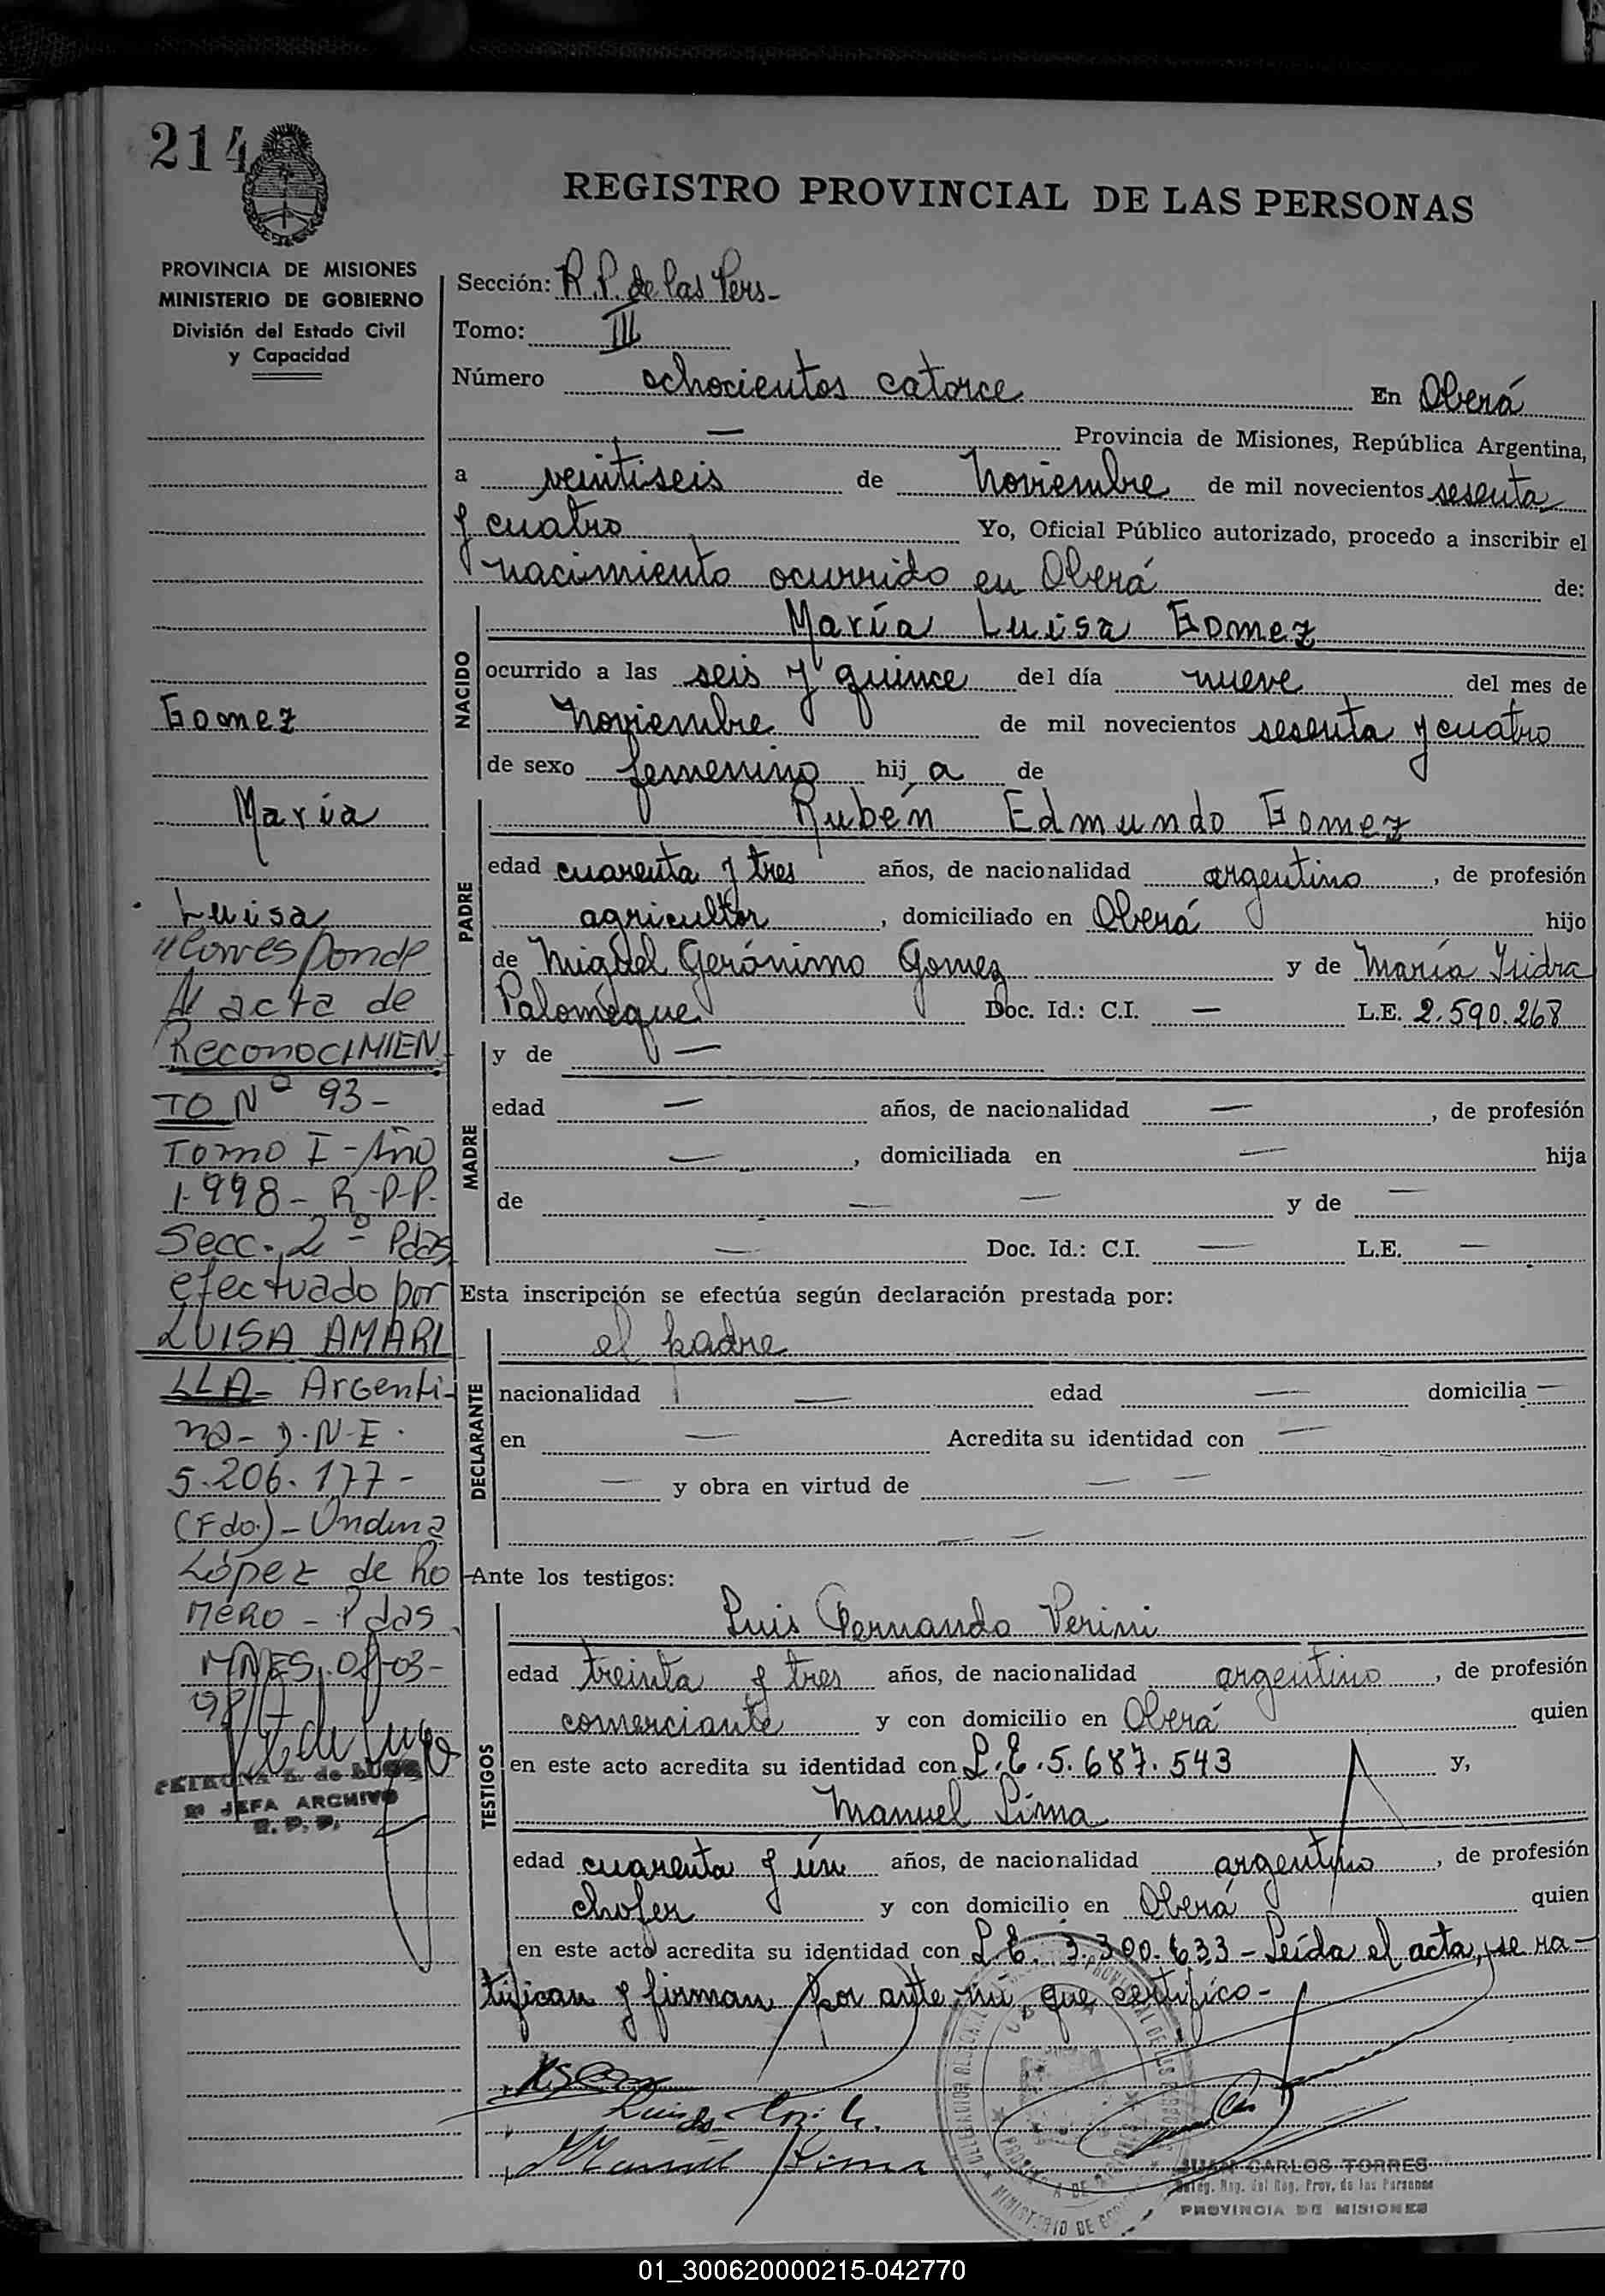 214
REGISTRO PROVINCIAL DE LAS PERSONAS
PROVINCIA DE MISIONES
MINISTERIO DE GOBIERNO
División del Estado Civil
y Capacidad
Gomez
María
Luisa
"Corresponde
Al acta de
RECONOCIMIEN
TO Nº 93-
Tomo I - Año
1.998 - R-P-P.
Secc. 2º Pdas
efectuado por
LUISA AMARI
LLA - Argenti-
na - D.N.E.
5.206.177-
(Fdo.) - Undina
López de Ro
mero - Pdas
MNES, 03-
98
JEFA ARCHIVO
R. P. P.
Sección: R.P. de las Pers-
Tomo: III
Número ochocientos catorce En Oberá
— Provincia de Misiones, República Argentina,
a veintiseis de Noviembre de mil novecientos sesenta
y cuatro Yo, Oficial Público autorizado, procedo a inscribir el
nacimiento ocurrido en Oberá de:
NACIDO
María Luisa Gomez
ocurrido a las seis y quince del día nueve del mes de
Noviembre de mil novecientos sesenta y cuatro
de sexo femenino hij a de
PADRE
Rubén Edmundo Gomez
edad cuarenta y tres años, de nacionalidad argentino, de profesión
agricultor, domiciliado en Oberá hijo
de Miguel Gerónimo Gomez y de María Isidra
Palomeque Doc. Id.: C.I. — L.E. 2.590.268
MADRE
y de —
edad — años, de nacionalidad —, de profesión
—, domiciliada en — hija
de — — y de —
— Doc. Id.: C.I. — L.E. —
Esta inscripción se efectúa según declaración prestada por:
DECLARANTE
el padre
nacionalidad — edad — domicilia —
en — Acredita su identidad con —
— y obra en virtud de — —
— —
Ante los testigos:
TESTIGOS
Luis Fernando Verini
edad treinta y tres años, de nacionalidad argentino, de profesión
comerciante y con domicilio en Oberá quien
en este acto acredita su identidad con L.E. 5.687.543 y,
Manuel Lima
edad cuarenta y ún años, de nacionalidad argentino, de profesión
chofer y con domicilio en Oberá quien
en este acto acredita su identidad con L.E. 3.300.633 - Leída el acta, se ra-
tifican y firman por ante mí, que certifico-
Manuel Lima
JUAN CARLOS TORRES
Deleg. Reg. del Reg. Prov. de las Personas
PROVINCIA DE MISIONES
01_300620000215-042770